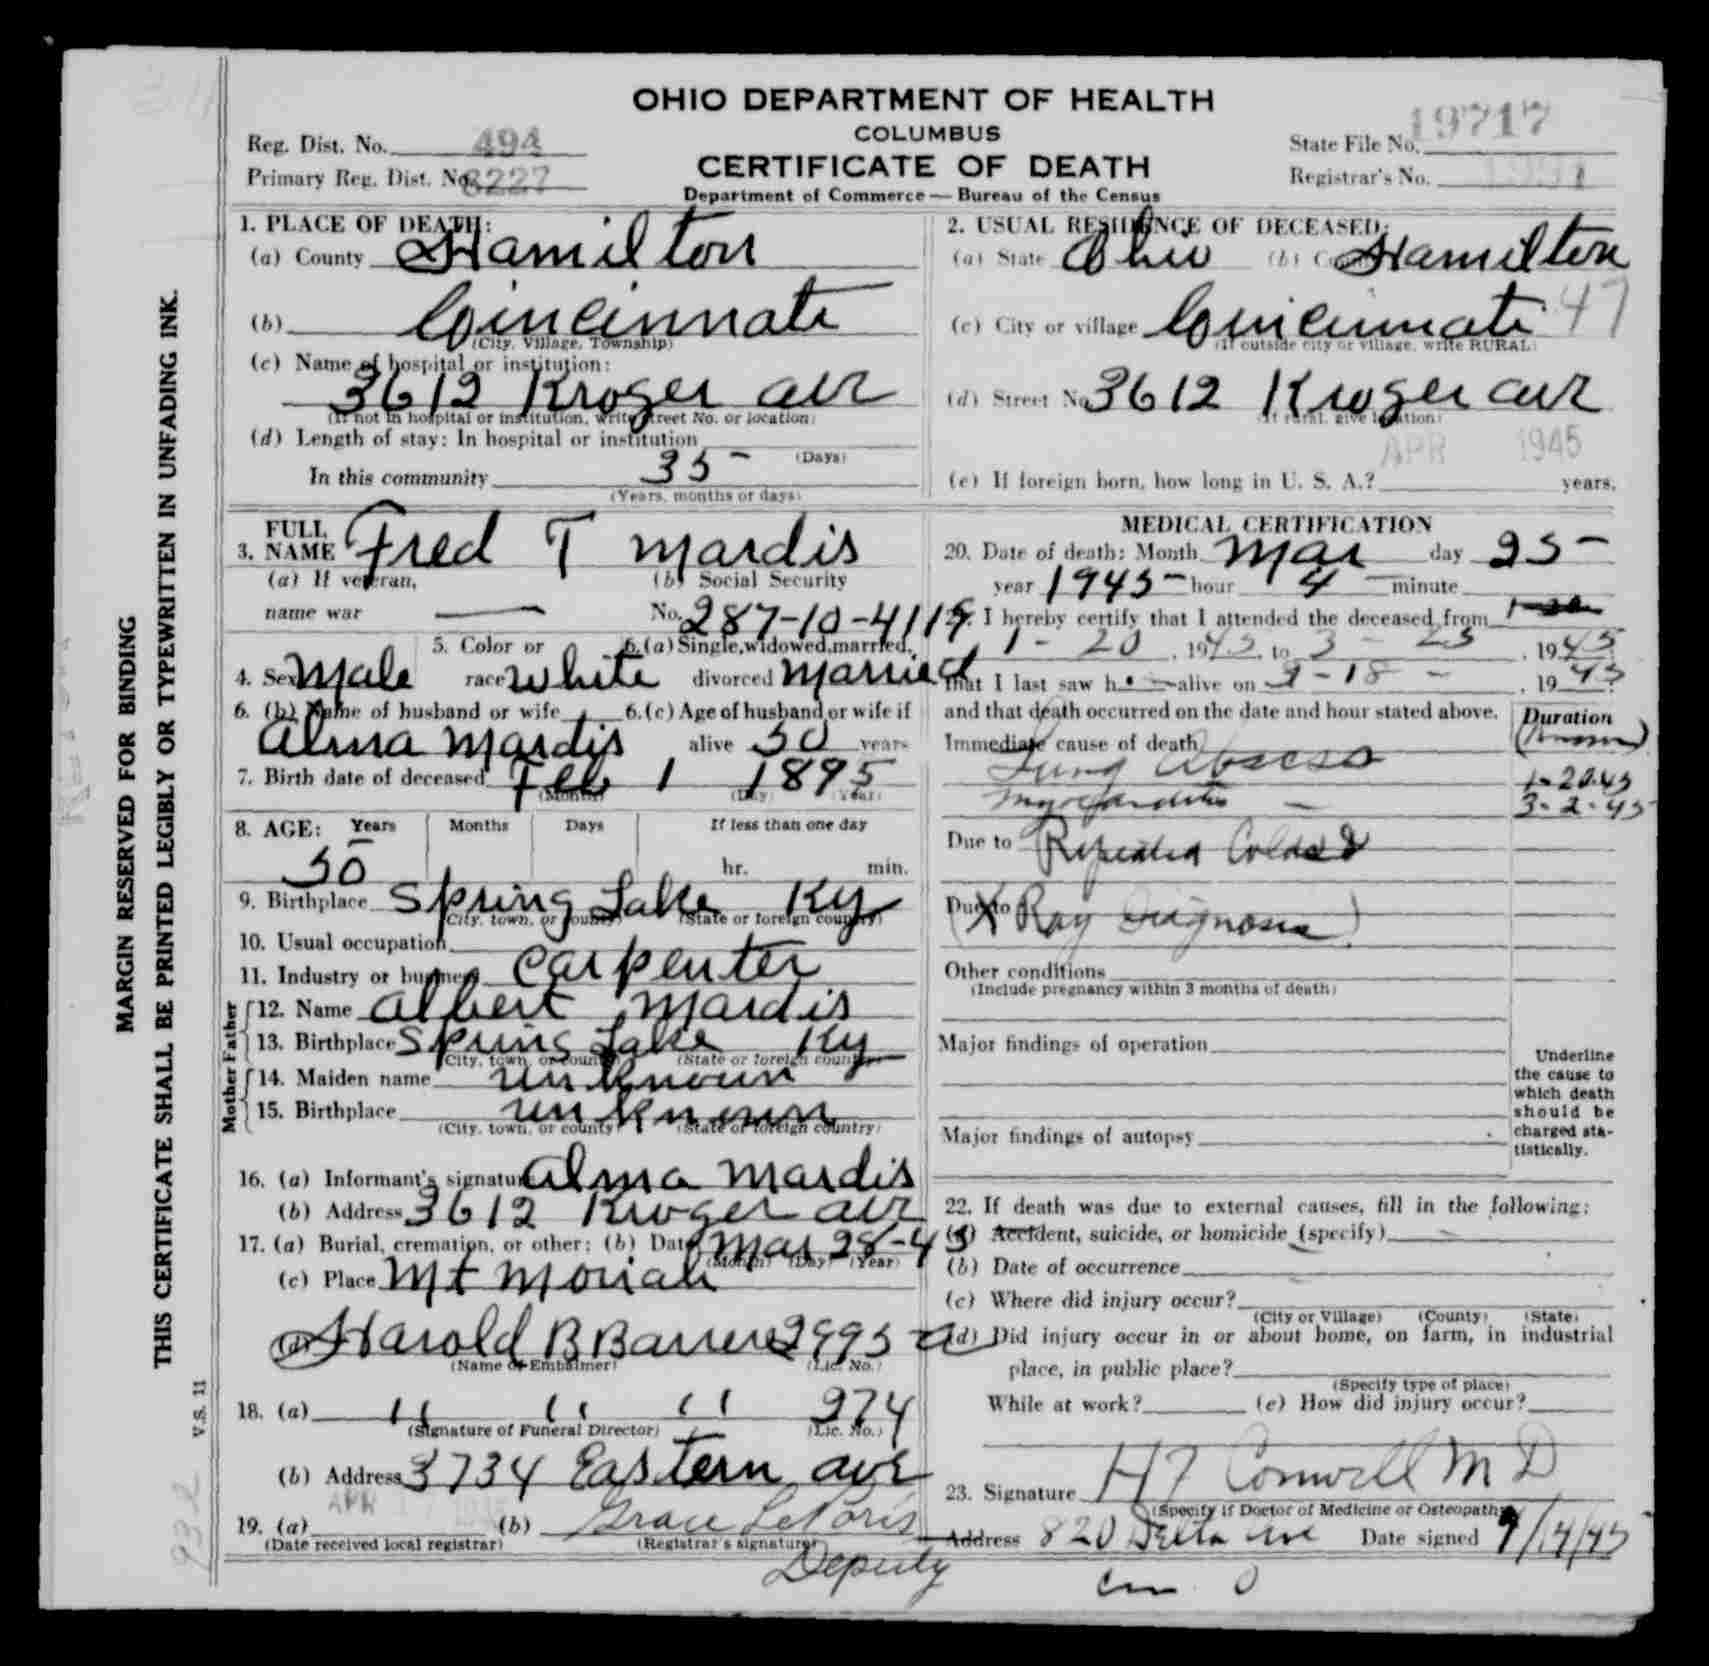 OHIO DEPARTMENT OF HEALTH
COLUMBUS
CERTIFICATE OF DEATH
Department of Commerce — Bureau of the Census
Reg. Dist. No. 494
Primary Reg. Dist. No. 8227
State File No. 19717
Registrar's No.
MARGIN RESERVED FOR BINDING
THIS CERTIFICATE SHALL BE PRINTED LEGIBLY OR TYPEWRITTEN IN UNFADING INK.
V.S. 11
1. PLACE OF DEATH:
(a) County Hamilton
(b) Cincinnati
(City, Village, Township)
(c) Name of hospital or institution:
3612 Kroger ave
(If not in hospital or institution, write street No. or location)
(d) Length of stay: In hospital or institution
(Days)
In this community 35
(Years, months or days)
2. USUAL RESIDENCE OF DECEASED:
(a) State Ohio (b) County Hamilton
(c) City or village Cincinnati 47
(If outside city or village, write RURAL)
(d) Street No. 3612 Kroger ave
(If rural, give location)
APR 1945
(e) If foreign born, how long in U. S. A.? years.
3. FULL NAME Fred T Mardis
(a) If veteran, name war —
(b) Social Security No. 287-10-4119
4. Sex Male 5. Color or race White 6. (a) Single, widowed, married, divorced Married
6. (b) Name of husband or wife Alma Mardis 6. (c) Age of husband or wife if alive 50 years
7. Birth date of deceased Feb 1 1895
(Month) (Day) (Year)
8. AGE: Years Months Days If less than one day
50 hr. min.
9. Birthplace Spring Lake Ky
(City, town, or county) (State or foreign country)
10. Usual occupation
11. Industry or business Carpenter
Father
12. Name Albert Mardis
13. Birthplace Spring Lake Ky
(City, town, or county) (State or foreign country)
Mother
14. Maiden name unknown
15. Birthplace unknown
(City, town, or county) (State or foreign country)
16. (a) Informant's signature Alma Mardis
(b) Address 3612 Kroger ave
17. (a) Burial, cremation, or other: (b) Date Mar 28-45
(Month) (Day) (Year)
(c) Place Mt Moriah
(d) Harold B 2995-a
(Name of Embalmer) (Lic. No.)
18. (a) " " " 274
(Signature of Funeral Director) (Lic. No.)
(b) Address 3734 Eastern ave
19. (a) APR (b) Grace
(Date received local registrar) (Registrar's signature)
Deputy
MEDICAL CERTIFICATION
20. Date of death: Month Mar day 25
year 1945 hour 4 minute
21. I hereby certify that I attended the deceased from
1 - 20, 1945, to 3 - 25, 1945
that I last saw h alive on 3-18-, 1945
and that death occurred on the date and hour stated above.
Duration
Immediate cause of death
Lung Abscess 1-20-45
Myocarditis — 3-2-45
Due to Repeated Colds
Due to
(X Ray Diagnosis)
Other conditions
(Include pregnancy within 3 months of death)
Major findings of operation
Major findings of autopsy
Underline the cause to which death should be charged statistically.
22. If death was due to external causes, fill in the following:
(a) Accident, suicide, or homicide (specify)
(b) Date of occurrence
(c) Where did injury occur?
(City or Village) (County) (State)
(d) Did injury occur in or about home, on farm, in industrial
place, in public place?
(Specify type of place)
While at work? (e) How did injury occur?
23. Signature H F Conwell M D
(Specify if Doctor of Medicine or Osteopath)
Address 820 Delta ave Date signed